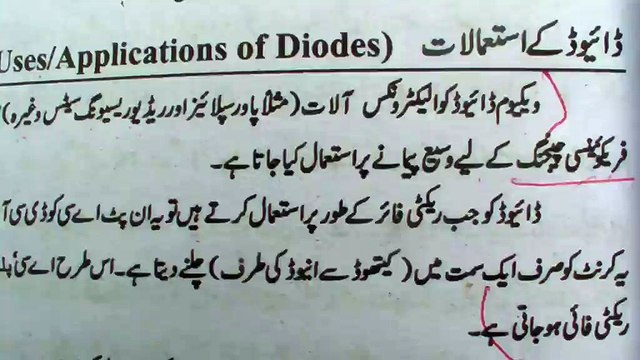 ڈائیوڈ کے استعمالات (Uses/Applications of Diodes)
ویکیوم ڈائیوڈ کو الیکٹرونکس آلات (مثلاً پاور سپلائیز اور ریڈیو ریسیونگ سیٹس وغیرہ)
فریکوئنسی چینجنگ کے لیے وسیع پیمانے پر استعمال کیا جاتا ہے۔
ڈائیوڈ کو جب ریکٹی فائر کے طور پر استعمال کرتے ہیں تو یہ ان پٹ اے سی کو ڈی سی
یہ کرنٹ کو صرف ایک سمت میں (کیتھوڈ سے انیوڈ کی طرف) چلنے دیتا ہے۔ اس طرح اے سی
ریکٹی فائی ہو جاتی ہے۔